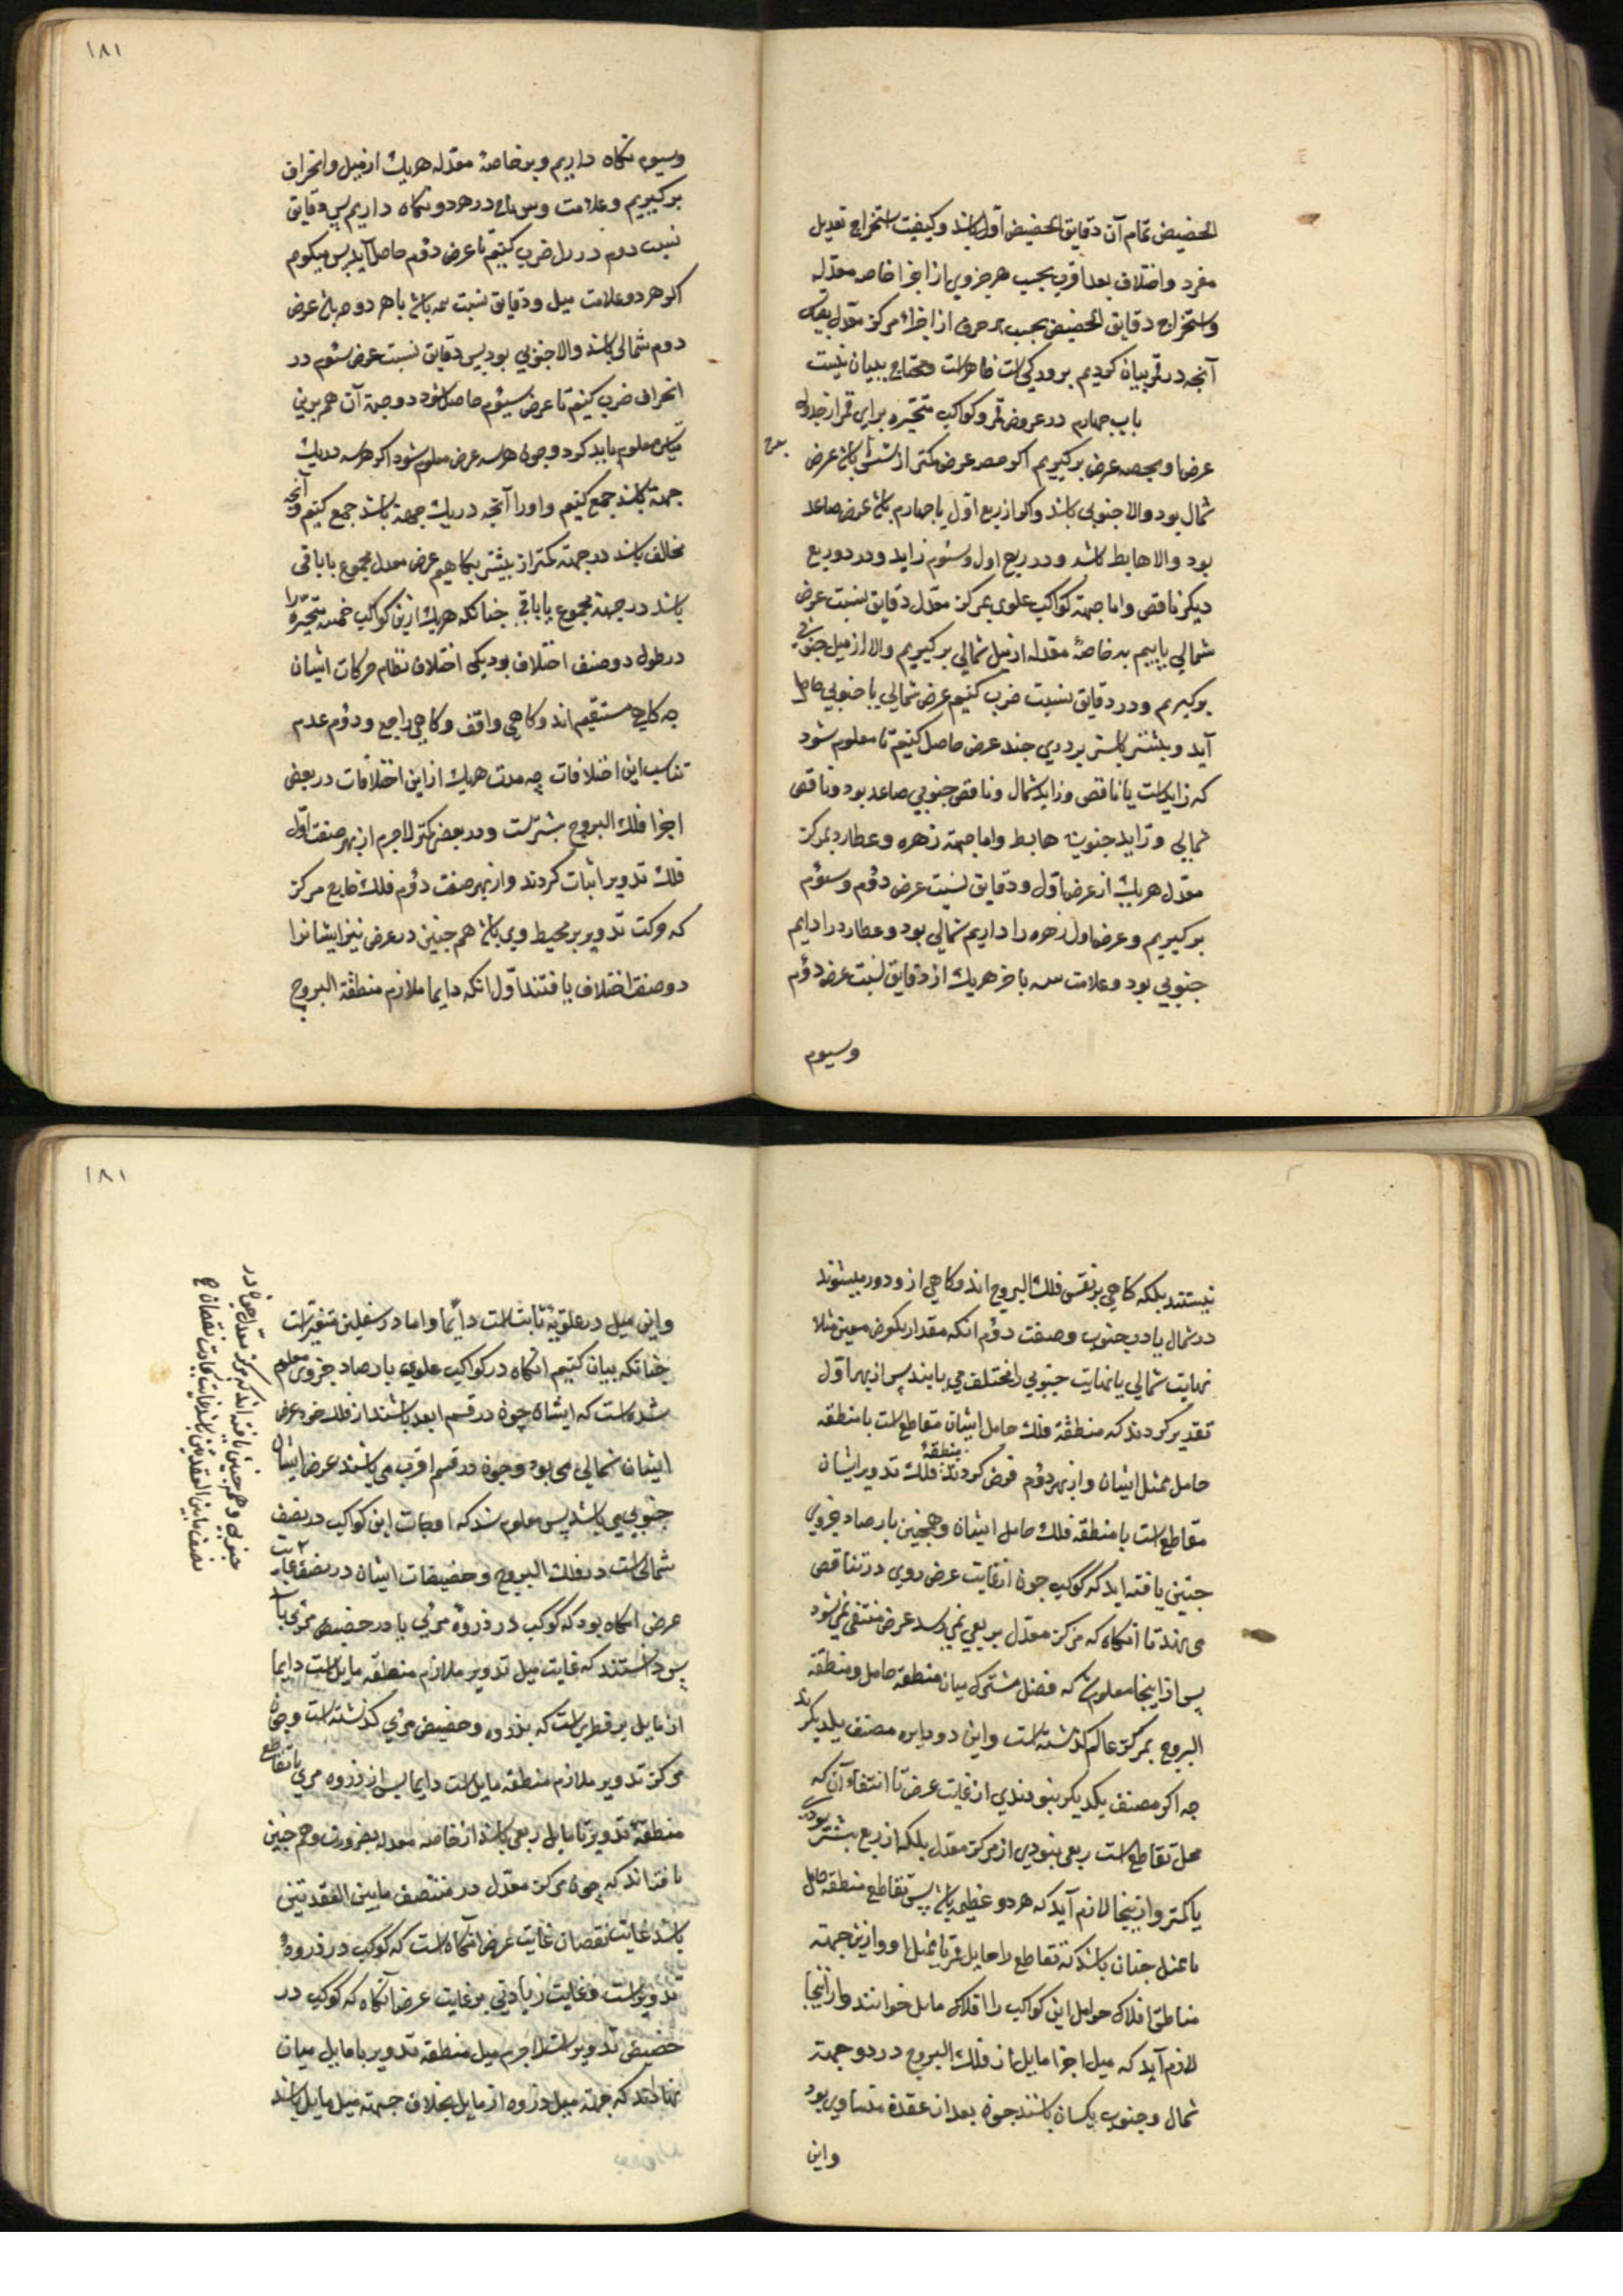 الحضیض تمام آن دقایق الحضیض اول باشد و کیفیت استخراج تعدیل
مفرد و اختلاف بعد اقرب بحسب هر جزوی از اجزا خاصه معدله
و استخراج دقایق الحضیض بحسب هر جزو از اجزاء مرکز معدل بقیاس
آنچه در قمر بیان کردیم بر وی که است ظاهر است و محتاج ببیان نیست
باب چهارم در عروض قمر و کواکب متحیره برای قمر از جداول
عرضها و بحصه عرض برگیریم اگر حصه عرض کمتر از شش باشد عرض
شمال بود و الا جنوبی باشد و اگر از ربع اول یا چهارم باشد عرض صاعد
بود و الا هابط باشد و در ربع اول و سئوم زاید و در دو ربع
دیگر ناقص و اما جهة کواکب علوی بمرکز معدل دقایق نسبت عرض
شمالی یابیم بد خاصهٔ معدله از میل شمالی برگیریم و الا از میل جنوبی
برگیریم و در دقایق نسبت ضرب کنیم عرض شمالی یا جنوبی حاصل
آید و بیشتر باستر بر دی چند عرض حاصل کنیم تا معلوم شود
که زاید است یا ناقص و زاید شمال و ناقص جنوبی صاعد بود و ناقص
شمالی و زاید جنوبی هابط و اما جهة زهره و عطارد بمرکز
معدل هریک از عرض اول و دقایق نسبت عرض دوم و سئوم
برگیریم و عرض اول زهره را دایم شمالی بود و عطارد را دایم
جنوبی بود و علامت سه با خر هریک از دقایق نسبت عرض دوم
و سیوم
۱۸۱
و سیوم نگاه داریم و بر خاصهٔ معدله هریک از میل و انحراف
برگیریم و علامت در هر دو نگاه داریم پس دقایق
نسبت دوم در میل ضرب کنیم تا عرض دوم حاصل آید پس میگوم
اگر هر دو علامت میل و دقایق نسبت سه باشد یا هر دو صه باشد عرض
دوم شمالی باشد و الا جنوبی بود پس دقایق نسبت عرض سئوم در
انحراف ضرب کنیم تا عرض سیئوم حاصل شود و جهة آن هم برین
قیاس معلوم باید کرد و چون هر سه عرض معلوم شود اگر هر سه در یک
جهة باشد جمع کنیم و او را آنچه در یک جهة باشد جمع کنیم و آنچه
مخالف باشد در جهة کمتر از بیشتر بکاهیم عرض معدل مجموع یا باقی
باشد در جهة مجموع یا باقی چنانکه هریک ازین کواکب خمسه متحیره را
در طول دو صنف اختلاف بود یکی اختلاف نظام حرکات ایشان
چه گاهی مستقیم اند و گاهی واقف و گاهی راجع و دوم عدم
تناسب این اختلافات چه مدت هریک از این اختلافات در بعض
اجزا فلک البروج بیشتر است و در بعض کمتر لاجرم از بهر صنف اول
فلک تدویر اثبات کردند و از بهر صنف دوم فلک خارج مرکز
که حرکت تدویر بر محیط وی باشد هم چنین در عرض نیز ایشانرا
دو صنف اختلاف یافتند اول انکه دایما ملازم منطقة البروج
نیستند بلکه گاهی بر نفس فلک البروج اند و گاهی از و دور میشوند
در شمال یا در جنوب و صنف دوم انکه مقدار یکوض معین مثلا
نهایت شمالی یا نهایت جنوبی را مختلف می یابند پس از بهر اول
تقدیر کردند که منطقة فلک حامل ایشان متقاطع است با منطقه
حامل ممثل ایشان و از بهر دوم فرض کردند منطقهٔ فلک تدویر ایشان
متقاطع است با منطقه فلک حامل ایشان و همچنین بارصاد جزوی
چنین یافته اند که کوکب چون از غایت عرض روی در تناقص
می نهد تا انگاه که مرکز معدل بربعی نمی رسد عرض منتفی نمی شود
پس از اینجا معلوم شد که فصل مشترک میان منطقه حامل و منطقه
البروج بمرکز عالم گذشته است و این دو دایره منصف یکدیگر ند
چه اگر منصف یکدیگر نبودندی از غایت عرض تا انتفاء آن که
محل تقاطع است ربعی نبودی از مرکز معدل بلکه از ربع بیشتر بودی
یا کمتر و از اینجا لازم آید که هر دو عظیمه باشد پس تقاطع منطقه حامل
با ممثل چنان باشد که تقاطع را مایل قمر با ممثل او و ازین جهة
مناطق افلاک حوامل این کواکب را افلاک مایل خوانند و از اینجا
لازم آید که میل اجزا مایل از فلک البروج در دو جهة
شمال و جنوب یکسان باشند چون بعد از عقدة متساوی بود
و این
۱۸۱
و این میل در علویة ثابت است دائما و اما در سفلین متغیر است
چنانکه بیان کنیم انگاه در کواکب علوی بارصاد جزوی معلوم
شده است که ایشان چون در قسم ابعد باشند از فلک خود عرض
ایشان شمالی می بود و چون در قسم اقرب می باشند عرض ایشان
جنوبی می باشد پس معلوم شد که اوجات این کواکب در نصف
شمالی است در فلک البروج و حضیضات ایشان در نصف غایت
عرض انگاه بود که کوکب در ذروه مرئی یا در حضیض مرئی باشد
پس دانستند که غایت میل تدویر ملازم منطقه مایل است دایما
از مایل بر قطریست که بذروه و حضیض مرئی گذشته است و چون
مرکز تدویر ملازم منطقه مایل است دایما پس از ذروه مرئی تا تقاطع
منطقهٔ تدویر تا مایل ربعی باشد از خاصه معدله بضرورت و هم چنین
یافته اند که چون مرکز معدل در منتصف ما بین العقدتین
باشد غایت نقصان غایت عرض انگاه است که کوکب در ذروهٔ
تدویر است و غایت زیادتی بر غایت عرض آنگاه که کوکب در
حضیض تدویر است لاجرم میل منطقه تدویر با مایل میان
نهادند که جهة میل ذروه از مایل بخلاف جهة میل مایل باشد
جنوبی و هم چنین یافته اند که مرکز معدل چون در
نصف ما بین العقدتین باشد غایت نقصان